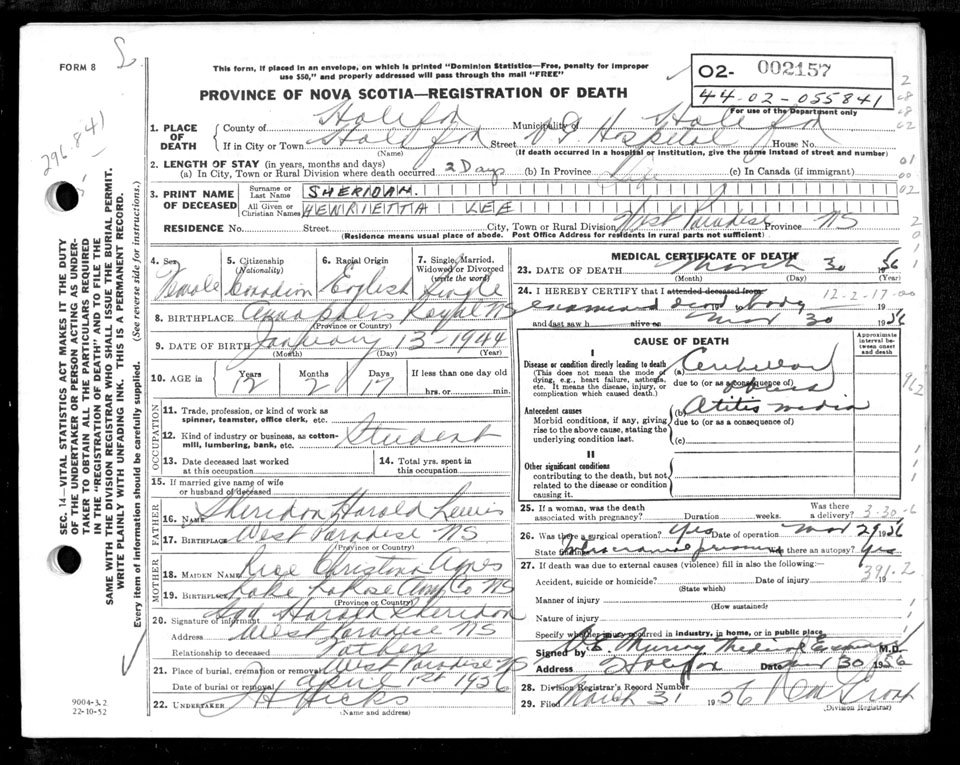 FORM 8
This form, if placed in an envelope, on which is printed "Dominion Statistics—Free, penalty for improper
use $50," and properly addressed will pass through the mail "FREE"
PROVINCE OF NOVA SCOTIA—REGISTRATION OF DEATH
02- 002157
44-02-055841
For use of the Department only
296.841
SEC. 14—VITAL STATISTICS ACT MAKES IT THE DUTY
OF THE UNDERTAKER OR PERSON ACTING AS UNDER-
TAKER TO OBTAIN ALL THE PARTICULARS REQUIRED
IN THE "REGISTRATION OF DEATH" AND TO FILE THE
SAME WITH THE DIVISION REGISTRAR WHO SHALL ISSUE THE BURIAL PERMIT.
WRITE PLAINLY WITH UNFADING INK. THIS IS A PERMANENT RECORD.
Every item of information should be carefully supplied. (See reverse side for instructions.)
1. PLACE OF DEATH
County of Halifax Municipality of Halifax
If in City or Town Halifax Street Hospital House No.
(Name) (If death occurred in a hospital or institution, give the name instead of street and number)
2. LENGTH OF STAY (in years, months and days)
(a) In City, Town or Rural Division where death occurred 2 Days (b) In Province Life (c) In Canada (if immigrant)
3. PRINT NAME OF DECEASED
Surname or Last Name SHERIDAN
All Given or Christian Names HENRIETTA LEE
RESIDENCE No. Street City, Town or Rural Division West Paradise Province NS
(Residence means usual place of abode. Post Office Address for residents in rural parts not sufficient)
4. Sex Female
5. Citizenship (Nationality) Canadian
6. Racial Origin English
7. Single, Married, Widowed or Divorced (write the word) Single
8. BIRTHPLACE Annapolis Royal NS
(Province or Country)
9. DATE OF BIRTH January 13 - 1944
(Month) (Day) (Year)
10. AGE in Years 12 Months 2 Days 17 If less than one day
hrs. or min.
OCCUPATION
11. Trade, profession, or kind of work as
spinner, teamster, office clerk, etc.
12. Kind of industry or business, as cotton-
mill, lumbering, bank, etc. Student
13. Date deceased last worked
at this occupation
14. Total yrs. spent in
this occupation
15. If married give name of wife
or husband of deceased
FATHER
16. NAME Sheridan Harold Lewis
17. BIRTHPLACE West Paradise NS
(Province or Country)
MOTHER
18. MAIDEN NAME Rice Christina Agnes
19. BIRTHPLACE Lake LaRose Ann Co NS
(Province or Country)
20. Signature of informant Sgd Harold Sheridan
Address West Paradise NS
Relationship to deceased Father
21. Place of burial, cremation or removal West Paradise NS
Date of burial or removal April 1st 1956
22. UNDERTAKER Hicks
(Name and address)
9004-3.2.
22-10-52
MEDICAL CERTIFICATE OF DEATH
23. DATE OF DEATH March 30 1956
(Month) (Day) (Year)
24. I HEREBY CERTIFY that I attended deceased from 12-2-17-00
examined dead body
and last saw h alive on Mar 30 1956
CAUSE OF DEATH
Approximate interval between onset and death
I
Disease or condition directly leading to death
(This does not mean the mode of
dying, e.g., heart failure, asthenia,
etc. It means the disease, injury, or
complication which caused death.)
(a) Cerebellar
due to (or as a consequence of) abscess
Antecedent causes
Morbid conditions, if any, giving
rise to the above cause, stating the
underlying condition last.
(b) Otitis media
due to (or as a consequence of)
(c)
II
Other significant conditions
contributing to the death, but not
related to the disease or condition
causing it.
25. If a woman, was the death
associated with pregnancy? Duration weeks. Was there
a delivery? 3-30-6
26. Was there a surgical operation? Yes Date of operation Mar 29 1956
State findings Intracranial pressure Was there an autopsy? Yes
27. If death was due to external causes (violence) fill in also the following:
391.2
Accident, suicide or homicide? Date of injury
(State which)
Manner of injury
(How sustained)
Nature of injury
Specify whether injury occurred in industry, in home, or in public place.
Signed by Murray Medical Examiner M.D.
Address Halifax Date Mar 30 1956
28. Division Registrar's Record Number
29. Filed March 31 1956
(Division Registrar)